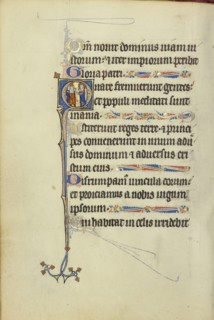 m nouit dominus uiam iu
storum: et iter impiorum peribit
Gloria patri.
Quare fremuerunt gentes:
et populi meditati sunt
inania.
Astiterunt reges terre et princi
pes conuenerunt in unum aduer
sus dominum et aduersus cri
stum eius.
Disrumpam' uincula eorum:
et proiciamus a nobis iugum
ipsorum.
Qui habitat in celis irridebit